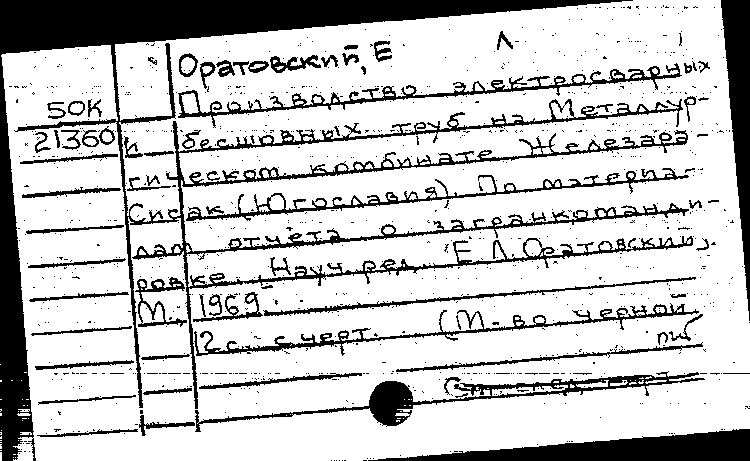 Оратовский, Е Л
50К
Производство электросварных
21360
и бесшовных труб на Металлур-
гическом комбинате Железара -
Сисак (Югославия). По материа-
лам отчета о загранкоманди-
ровке. Науч. ред. Е Л. Оратовский,
М., 1969.
12 с. с черт. (М-во черной
См. след. карт